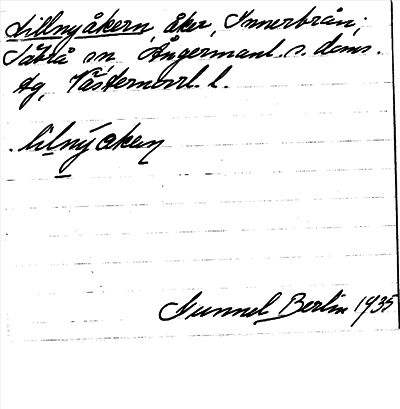 Lillnyåkern, åker, Innerbrån;
Såbrå sn, Ångermanl. s. doms.
tg, Västernorrl. l.
lilnýåkeɳ
Gunnel Berlin 1935